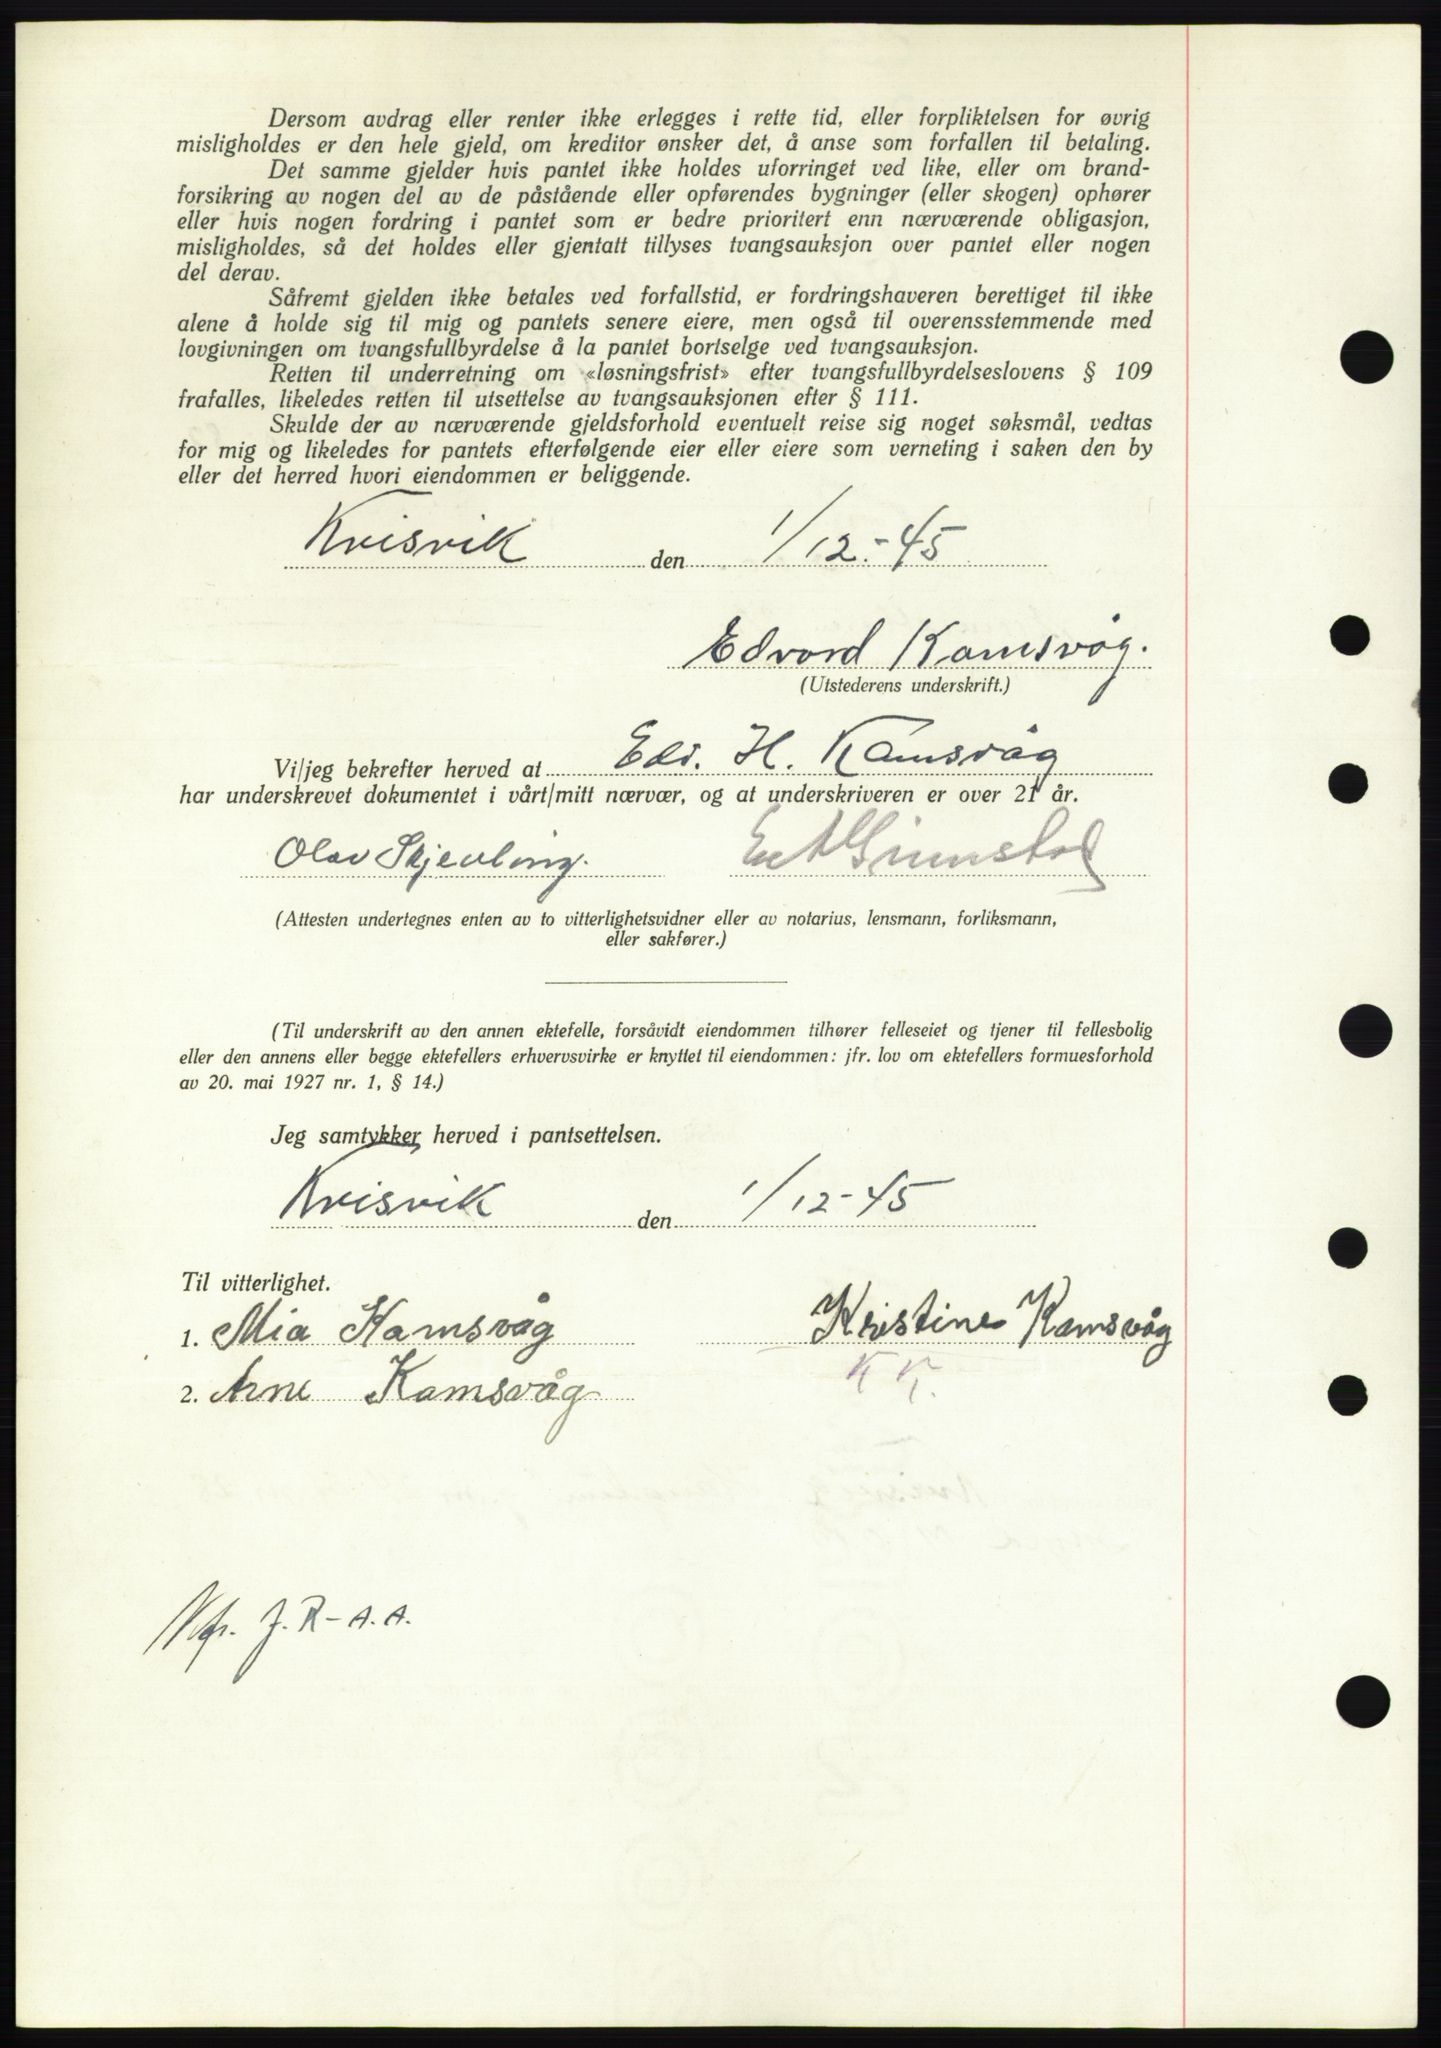 Dersom avdrag eller renter ikke erlegges i rette tid, eller forpliktelsen for øvrig
misligholdes er den hele gjeld, om kreditor ønsker det, å anse som forfallen til betaling.
Det samme gjelder hvis pantet ikke holdes uforringet ved like, eller om brand-
forsikring av nogen del av de påstående eller opførendes bygninger (eller skogen) ophører
eller hvis nogen fordring i pantet som er bedre prioritert enn nærværende obligasjon,
misligholdes, så det holdes eller gjentatt tillyses tvangsauksjon over pantet eller nogen
del derav.
Såfremt gjelden ikke betales ved forfallstid, er fordringshaveren berettiget til ikke
alene å holde sig til mig og pantets senere eiere, men også til overensstemmende med
lovgivningen om tvangsfullbyrdelse å la pantet bortselge ved tvangsauksjon.
Retten til underretning om «løsningsfrist» efter tvangsfullbyrdelseslovens § 109
frafalles, likeledes retten til utsettelse av tvangsauksjonen efter § 111.
Skulde der av nærværende gjeldsforhold eventuelt reise sig noget søksmål, vedtas
for mig og likeledes for pantets efterfølgende eier eller eiere som verneting i saken den by
eller det herred hvori eiendommen er beliggende.
Kvisvik den 1/12.-45
Edvard Kamsvåg.
(Utstederens underskrift.)
Vi/jeg bekrefter herved at Edv. H. Kamsvåg
har underskrevet dokumentet i vårt/mitt nærvær, og at underskriveren er over 21 år.
Olav Skjevling. Grimstad
(Attesten undertegnes enten av to vitterlighetsvidner eller av notarius, lensmann, forliksmann,
eller sakfører.)
(Til underskrift av den annen ektefelle, forsåvidt eiendommen tilhører felleseiet og tjener til fellesbolig
eller den annens eller begge ektefellers erhvervsvirke er knyttet til eiendommen: jfr. lov om ektefellers formuesforhold
av 20. mai 1927 nr. 1, § 14.)
Jeg samtykker herved i pantsettelsen.
Kvisvik den 1/12-45
Til vitterlighet.
1. Mia Kamsvåg Kristine Kamsvåg
K K.
2. Arne Kamsvåg
J. R-A.A.